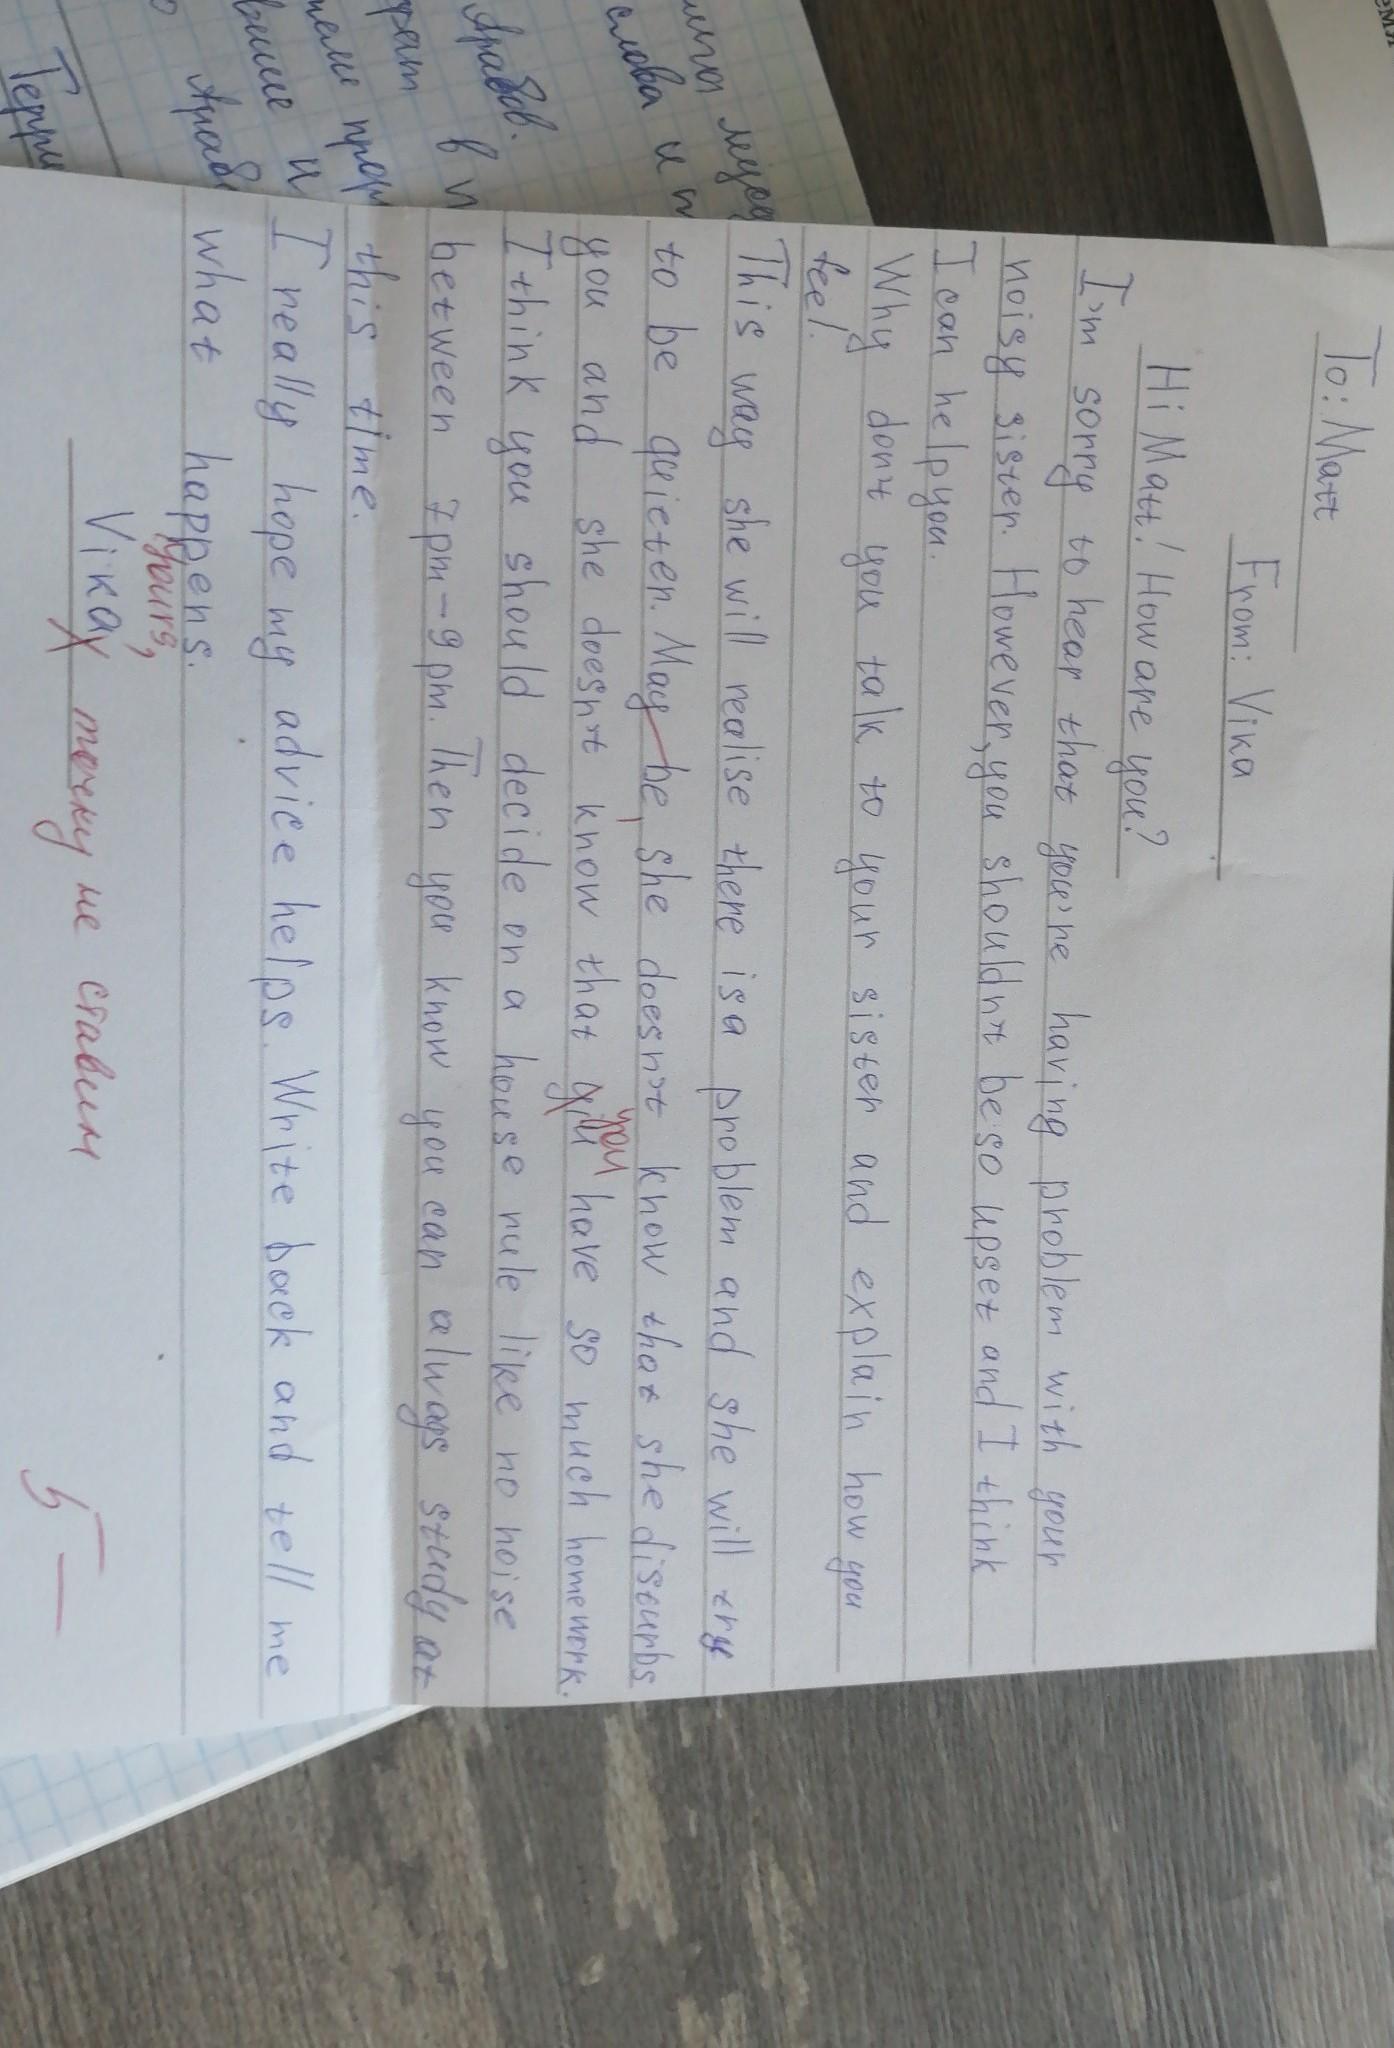 To: Matt
From: Vika
Hi Matt! How are you?
I'm sorry to hear that you're having problem with your
noisy sister. However, you shouldn't be so upset and I think
I can help you.
Why don't you talk to your sister and explain how you
feel.
This way she will realise there is a problem and she will try
to be quieter. May be, she doesn't know that she disturbs
you and she doesn't know that you have so much homework.
you
I think you should decide on a house rule like no noise
between 7pm-9pm. Then you know you can always study at
this time.
I really hope my advice helps. Write back and tell me
what happens.
yours,
Vika
точку не ставим
5-
слова и
Арабов.
в
и
Араб
Терри